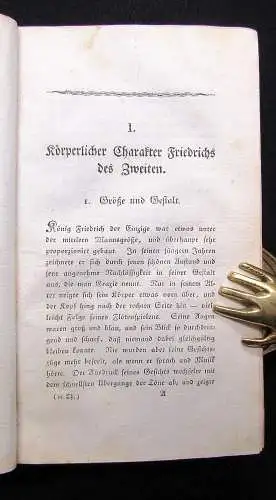 I.
Körperlicher Charakter Friedrichs
des Zweiten.
1. Größe und Gestalt.
König Friedrich der Einzige war etwas unter
der mittlern Mannsgröße, und überhaupt sehr
proporzionirt gebaut. In seinen jüngern Jahren
zeichnete er sich durch seinen schönen Anstand und
eine angenehme Nachlässigkeit in seiner Gestalt
aus, die man Grazie nennt. Nur in seinem Al-
ter neigte sich sein Körper etwas vorn über, und
der Kopf hing nach der rechten Seite hin — viel-
leicht Folge seines Flötenspielens. Seine Augen
waren groß und blau, und sein Blick so durchdrin-
gend und scharf, daß niemand dabei gleichgültig
bleiben konnte. Nie wurden aber seine Gesichts-
züge mehr beseelt, als wenn er sprach und Musik
hörte. Der Ausdruck seines Gesichts wechselte mit
dem schnellsten Übergange der Töne ab, und zeigte
A